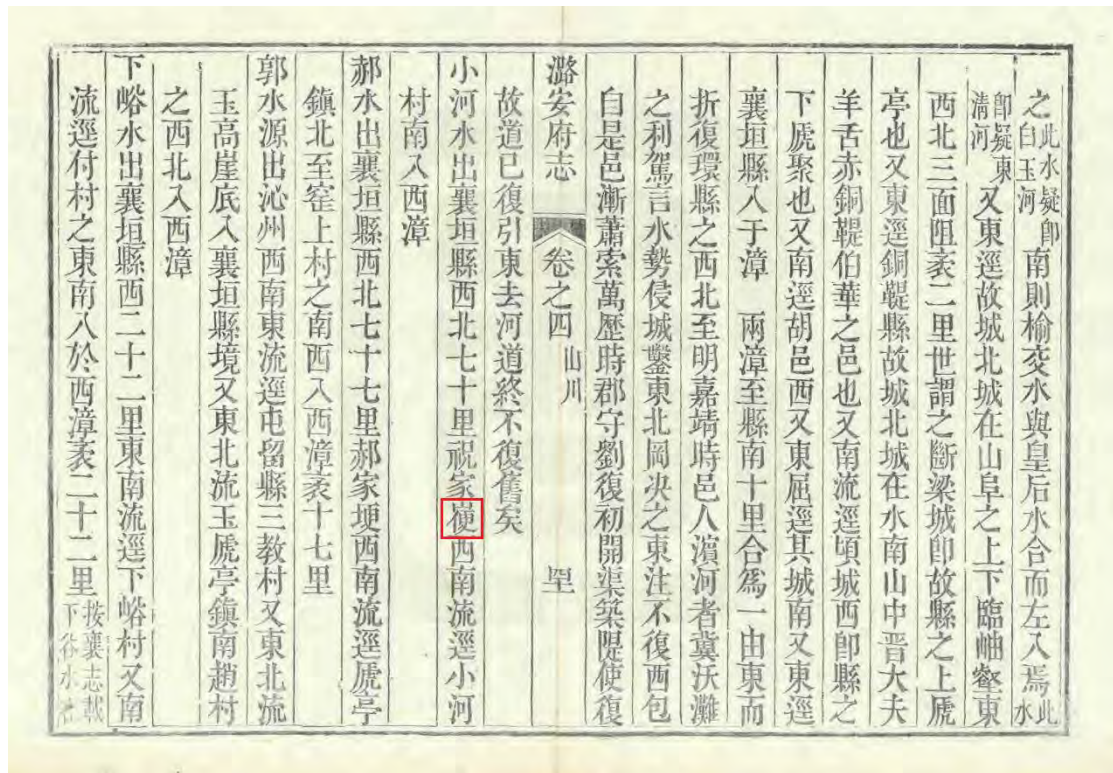 之此水疑卽白玉河南則榆交水與皇后水合而左入焉此水
卽疑東清河又東逕故城北城在山阜之上下臨岫壑東
西北三面阻袤二里世謂之斷梁城卽故縣之上虒
亭也又東逕銅鞮縣故城北城在水南山中晋大夫
羊舌赤銅鞮伯華之邑也又南流逕頃城西卽縣之
下虒聚也又南逕胡邑西又東屈逕其城南又東逕
襄垣縣入于漳　兩漳至縣南十里合爲一由東而
折復環縣之西北至明嘉靖時邑人濱河者冀沃灘
之利駕言水勢侵城鑿東北岡决之東注不復西包
自是邑漸蕭索萬歷時郡守劉復初開渠築隄使復
潞安府志　卷之四　山川
故道已復引東去河道終不復舊矣
小河水出襄垣縣西北七十里祝家西南流逕小河
村南入西漳
郝水出襄垣縣西北七十七里郝家埂西南流逕虒亭
鎮北至窑上村之南西入西漳袤十七里
郭水源出沁州西南東流逕屯留縣三教村又東北流
玉高崖底入襄垣縣境又東北流玉虒亭鎮南趙村
之西北入西漳
下峪水出襄垣縣西二十二里東南流逕下峪村又南
流逕付村之東南入於西漳袤二十二里按襄志載下谷水